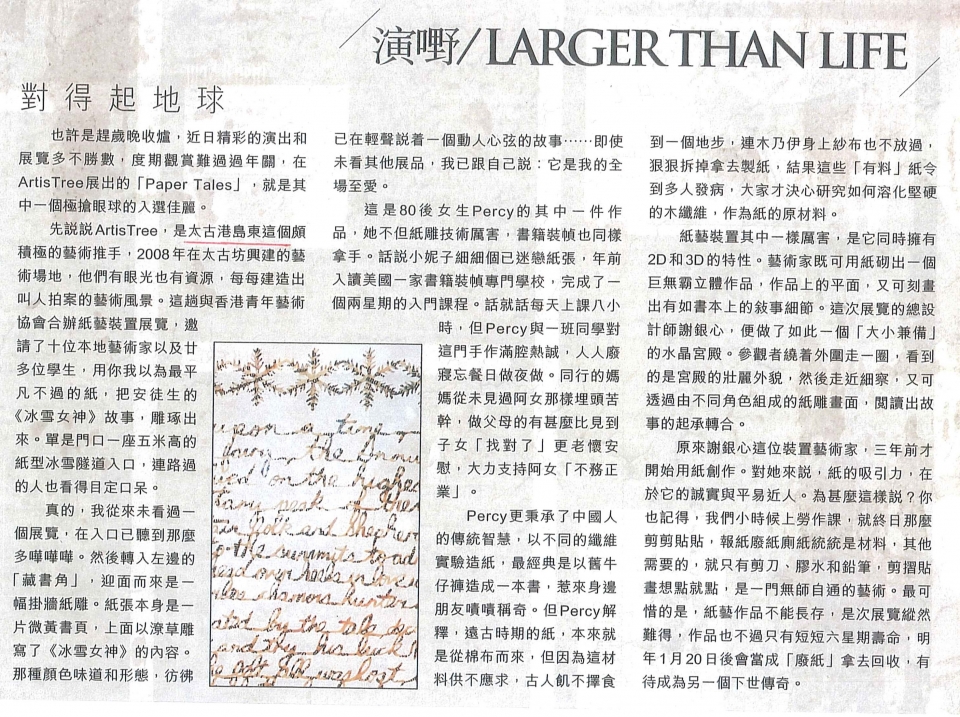 演嘢/LARGER THAN LIFE
對得起地球
也許是趕歲晚收爐，近日精彩的演出和
展覽多不勝數，度期觀賞難過過年關，在
ArtisTree展出的「Paper Tales」，就是其
中一個極搶眼球的入選佳麗。
先說說ArtisTree，是太古港島東這個頗
積極的藝術推手，2008年在太古坊興建的藝
術場地，他們有眼光也有資源，每每建造出
叫人拍案的藝術風景。這趟與香港青年藝術
協會合辦紙藝裝置展覽，邀
請了十位本地藝術家以及廿
多位學生，用你我以為最平
凡不過的紙，把安徒生的
《冰雪女神》故事，雕琢出
來。單是門口一座五米高的
紙型冰雪隧道入口，連路過
的人也看得目定口呆。
真的，我從來未看過一
個展覽，在入口已聽到那麼
多嘩嘩嘩。然後轉入左邊的
「藏書角」，迎面而來是一
幅掛牆紙雕。紙張本身是一
片微黃書頁，上面以潦草雕
寫了《冰雪女神》的內容。
那種顏色味道和形態，彷彿
upon a time
on the highest
peak of the
folk and shepher
to the summits to ad
hunter
by the tale
and
已在輕聲說着一個動人心弦的故事……即使
未看其他展品，我已跟自己說：它是我的全
場至愛。
這是80後女生Percy的其中一件作
品，她不但紙雕技術厲害，書籍裝幀也同樣
拿手。話說小妮子細細個已迷戀紙張，年前
入讀美國一家書籍裝幀專門學校，完成了一
個兩星期的入門課程。話就話每天上課八小
時，但Percy與一班同學對
這門手作滿腔熱誠，人人廢
寢忘餐日做夜做。同行的媽
媽從未見過阿女那樣埋頭苦
幹，做父母的有甚麼比見到
子女「找對了」更老懷安
慰，大力支持阿女「不務正
業」。
Percy更秉承了中國人
的傳統智慧，以不同的纖維
實驗造紙，最經典是以舊牛
仔褲造成一本書，惹來身邊
朋友嘖嘖稱奇。但Percy解
釋，遠古時期的紙，本來就
是從棉布而來，但因為這材
料供不應求，古人飢不擇食
到一個地步，連木乃伊身上紗布也不放過，
狠狠拆掉拿去製紙，結果這些「有料」紙令
到多人發病，大家才決心研究如何溶化堅硬
的木纖維，作為紙的原材料。
紙藝裝置其中一樣厲害，是它同時擁有
2D和3D的特性。藝術家既可用紙砌出一個
巨無霸立體作品，作品上的平面，又可刻畫
出有如書本上的敍事細節。這次展覽的總設
計師謝銀心，便做了如此一個「大小兼備」
的水晶宮殿。參觀者繞着外圍走一圈，看到
的是宮殿的壯麗外貌，然後走近細察，又可
透過由不同角色組成的紙雕畫面，閱讀出故
事的起承轉合。
原來謝銀心這位裝置藝術家，三年前才
開始用紙創作。對她來說，紙的吸引力，在
於它的誠實與平易近人。為甚麼這樣說？你
也記得，我們小時候上勞作課，就終日那麼
剪剪貼貼，報紙廢紙廁紙統統是材料，其他
需要的，就只有剪刀、膠水和鉛筆，剪摺貼
畫想點就點，是一門無師自通的藝術。最可
惜的是，紙藝作品不能長存，是次展覽縱然
難得，作品也不過只有短短六星期壽命，明
年1月20日後會當成「廢紙」拿去回收，有
待成為另一個下世傳奇。